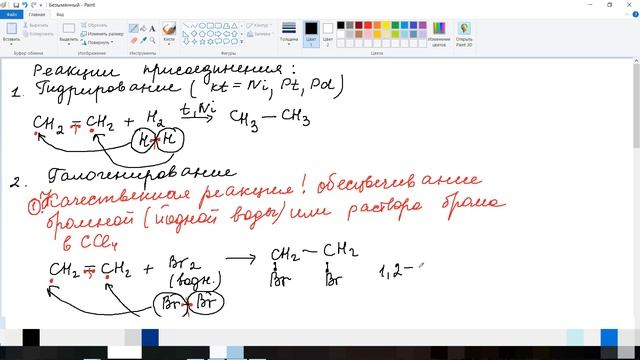 Безымянный - Paint
Файл Главная Вид
Вставить Вырезать Копировать Выделить Обрезать Изменить размер Повернуть Кисти Контур Заливка Толщина Цвет 1 Цвет 2 Изменение цветов Открыть Paint 3D
Буфер обмена Изображение Инструменты Фигуры Цвета
Реакции присоединения:
1. Гидрирование (kt = Ni, Pt, Pd)
CH2 = CH2 + H2 t, Ni → CH3 — CH3
H H
2. Галогенирование
① Качественная реакция! обесцвечивание
бромной (йодной воды) или раствора брома
в CCl4
CH2 = CH2 + Br2 → CH2 — CH2
(водн.) Br Br 1,2 –
Br Br